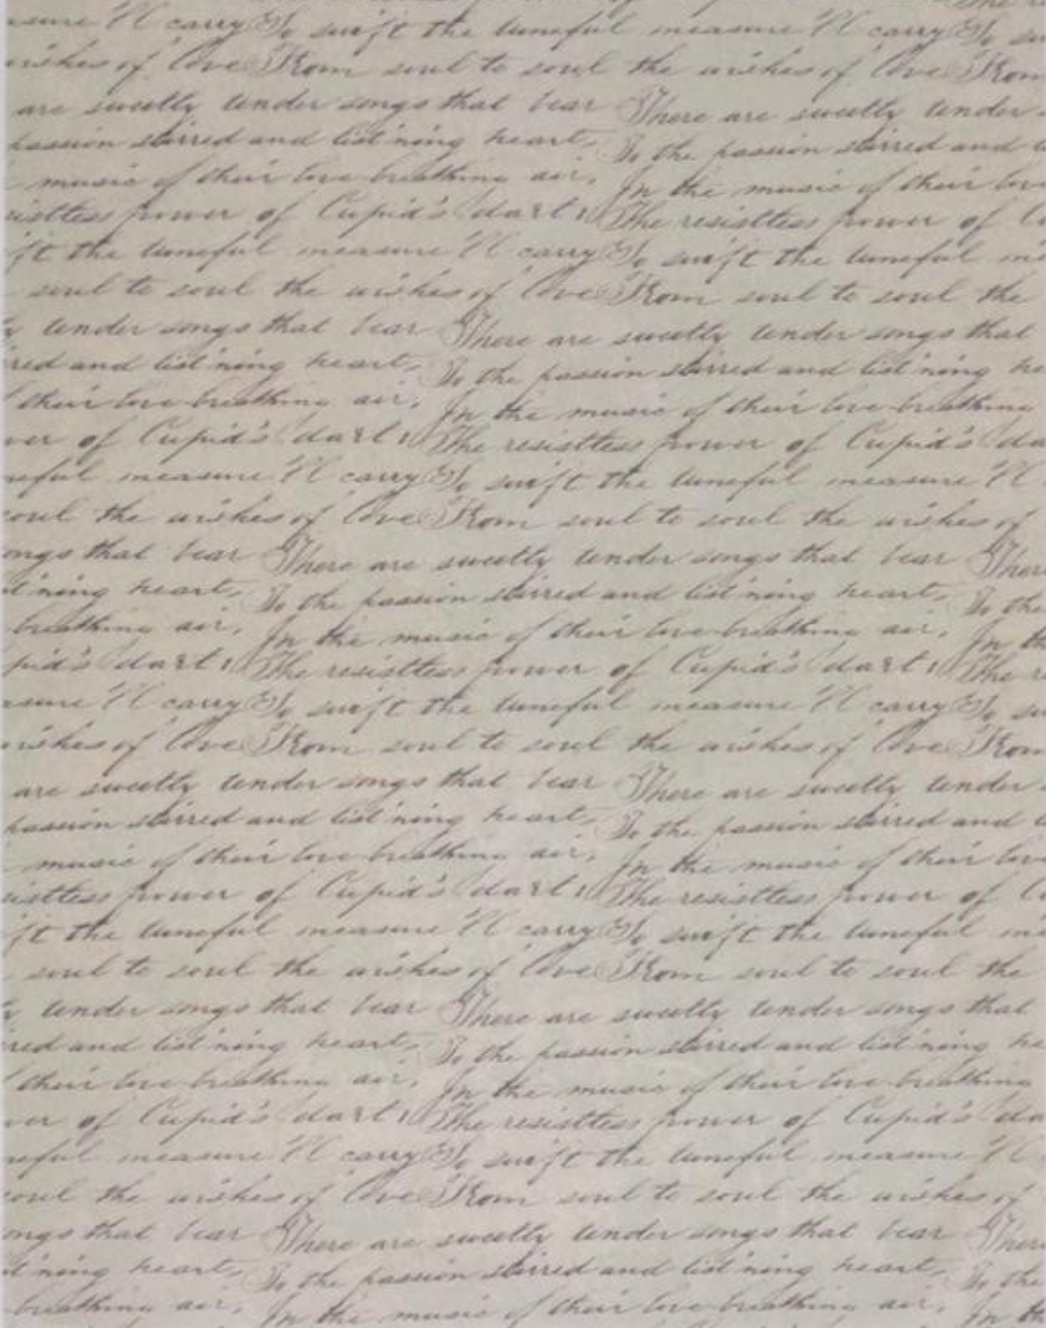 sure I'll carry So swift the tuneful measure I'll carry So
wishes of love From soul to soul the wishes of love From
are sweetly tender songs that bear There are sweetly tender
passion stirred and list'ning heart, To the passion stirred and
music of their love-breathing air, In the music of their love
resistless power of Cupid's dart! The resistless power of
swift the tuneful measure I'll carry So swift the tuneful
soul to soul the wishes of love From soul to soul the
tender songs that bear There are sweetly tender songs that
red and list'ning heart, To the passion stirred and list'ning he
their love-breathing air, In the music of their love-breathing
er of Cupid's dart! The resistless power of Cupid's da
eful measure I'll carry So swift the tuneful measure I'll
soul the wishes of love From soul to soul the wishes of
ongs that bear There are sweetly tender songs that bear There
t'ning heart, To the passion stirred and list'ning heart, To the
breathing air, In the music of their love-breathing air, In th
pid's dart! The resistless power of Cupid's dart! The r
asure I'll carry So swift the tuneful measure I'll carry So
wishes of love From soul to soul the wishes of love From
are sweetly tender songs that bear There are sweetly tender
passion stirred and list'ning heart, To the passion stirred and
music of their love-breathing air, In the music of their love
sistless power of Cupid's dart! The resistless power of
ft the tuneful measure I'll carry So swift the tuneful me
soul to soul the wishes of love From soul to soul the
tender songs that bear There are sweetly tender songs that
red and list'ning heart, To the passion stirred and list'ning he
their love-breathing air, In the music of their love-breathing
er of Cupid's dart! The resistless power of Cupid's da
eful measure I'll carry So swift the tuneful measure I'll
soul the wishes of love From soul to soul the wishes of
ongs that bear There are sweetly tender songs that bear There
t'ning heart, To the passion stirred and list'ning heart, To the
breathing air, In the music of their love-breathing air, In th